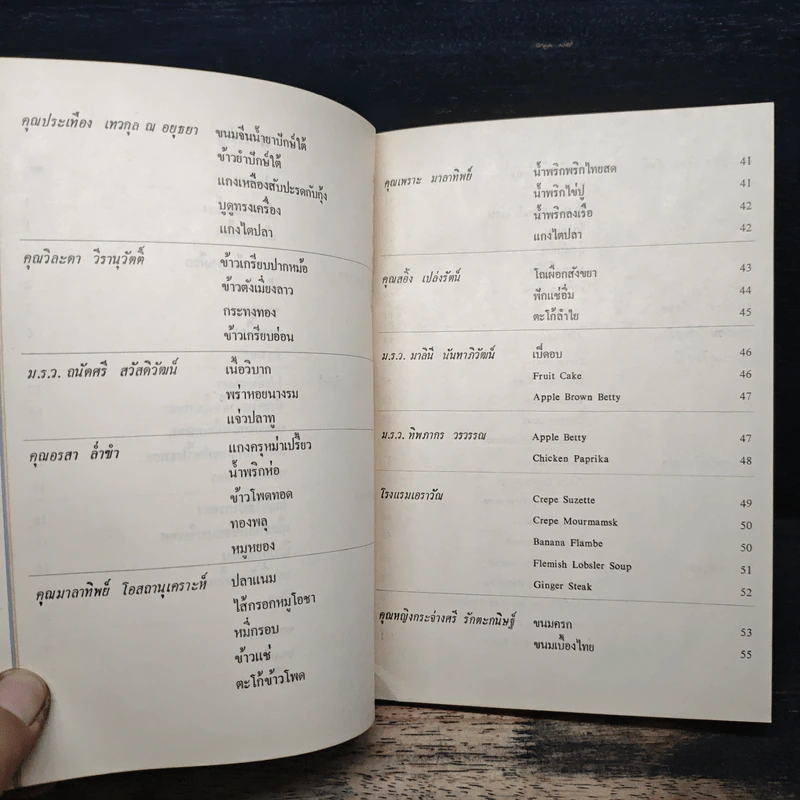 คุณประเทือง เทวกุล ณ อยุธยา ขนมจีนน้ำยาปักษ์ใต้
ข้าวยำปักษ์ใต้
แกงเหลืองสับปะรดกับกุ้ง
บูดูทรงเครื่อง
แกงไตปลา
คุณวิละดา วีรานุวัตติ์ ข้าวเกรียบปากหม้อ
ข้าวตังเมี่ยงลาว
กระทงทอง
ข้าวเกรียบอ่อน
ม.ร.ว. ถนัดศรี สวัสดิวัฒน์ เนื้อวิบาก
พร่าหอยนางรม
แจ่วปลาทู
คุณอรสา ล่ำซำ แกงครุหม่าเปรี้ยว
น้ำพริกห่อ
ข้าวโพดทอด
ทองพลุ
หมูหยอง
คุณมาลาทิพย์ โอสถานุเคราะห์ ปลาแนม
ไส้กรอกหมูโอชา
หมี่กรอบ
ข้าวแช่
ตะโก้ข้าวโพด
คุณเพราะ มาลาทิพย์ น้ำพริกพริกไทยสด 41
น้ำพริกไข่ปู 41
น้ำพริกลงเรือ 42
แกงไตปลา 42
คุณสอิ้ง เปล่งรัตน์ โถเผือกสังขยา 43
ฟักแช่อิ่ม 44
ตะโก้ลำไย 45
ม.ร.ว. มาลินี นันทาภิวัฒน์ เป็ดอบ 46
Fruit Cake 46
Apple Brown Betty 47
ม.ร.ว. ทิพภากร วรวรรณ Apple Betty 47
Chicken Paprika 48
โรงแรมเอราวัณ Crepe Suzette 49
Crepe Mourmamsk 50
Banana Flambe 50
Flemish Lobsler Soup 51
Ginger Steak 52
คุณหญิงกระจ่างศรี รักตะกนิษฐ์ ขนมครก 53
ขนมเบื้องไทย 55